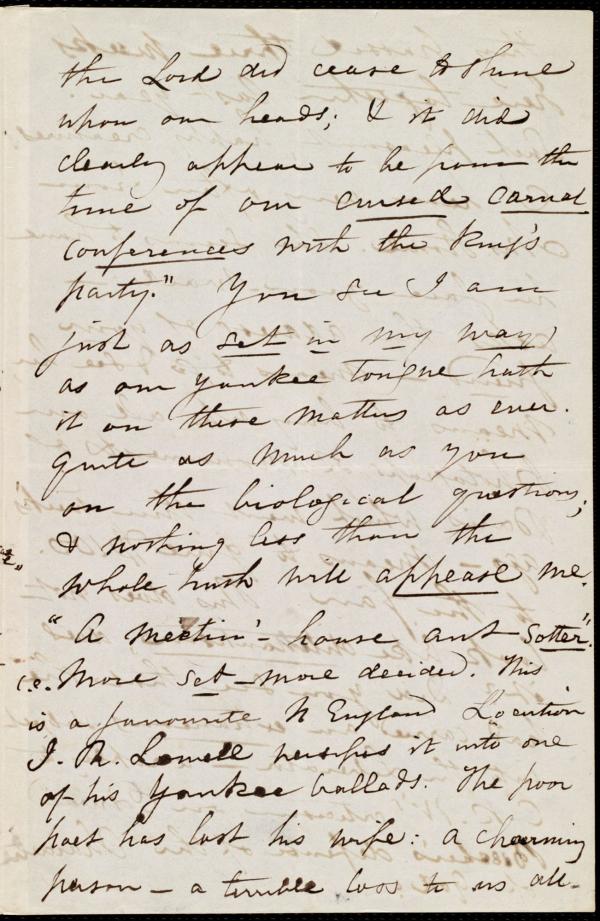 the Lord did cease to shine
upon our heads; & it did
clearly appear to be from the
time of our cursed carnal
conferences with the King's
party." You see I am
just as set in my way,
as our yankee tongue hath
it on these matters as ever.
Quite as much as you
on the biological questions;
& nothing less than the
whole truth will appease me.
"A meetin'-house aint sotter".
i.e. More set - more decided. This
is a favourite N England Locution
J. R. Lowell versifies it into one
of his Yankee ballads. The poor
poet has lost his wife: a charming
person - a terrible loss to us all -